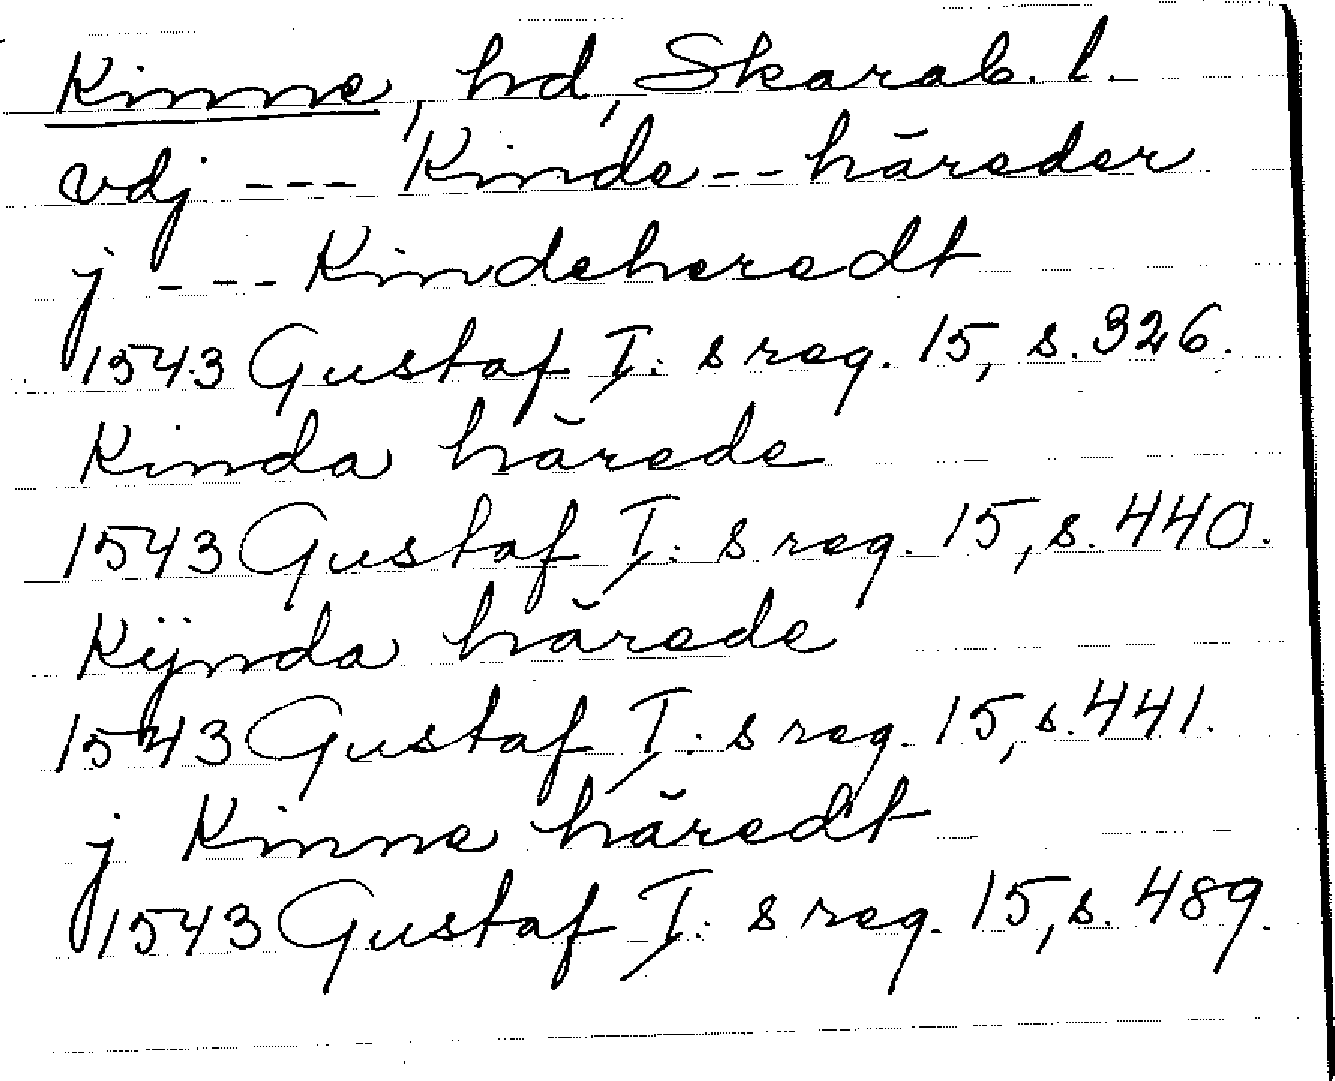 Kinne, hd, Skarab. l.
vdj --- Kinde -- häreder
j --- Kindeheredt
1543 Gustaf I:s reg. 15, s. 326.
Kinda härede
1543 Gustaf I:s reg. 15, s. 440.
Kÿnda härede
1543 Gustaf I:s reg. 15, s. 441.
j Kinne häredt
1543 Gustaf I:s reg. 15, s. 489.